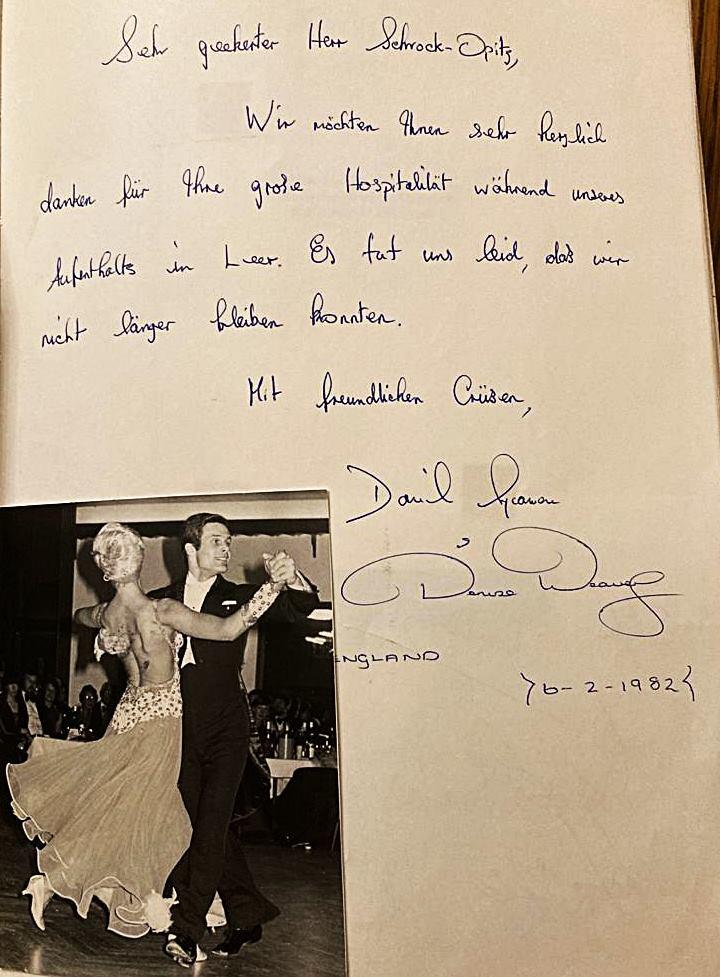 Sehr geekerter Herr Schrock-Opitz,
Wir möchten Ihnen sehr herzlich
danken für Ihre große Hospitalität während unseres
Aufenthalts in Leer. Es tut uns leid, daß wir
nicht länger bleiben konnten.
Mit freundlichen Crüßen,
Denise Weavers
ENGLAND
6-2-1982